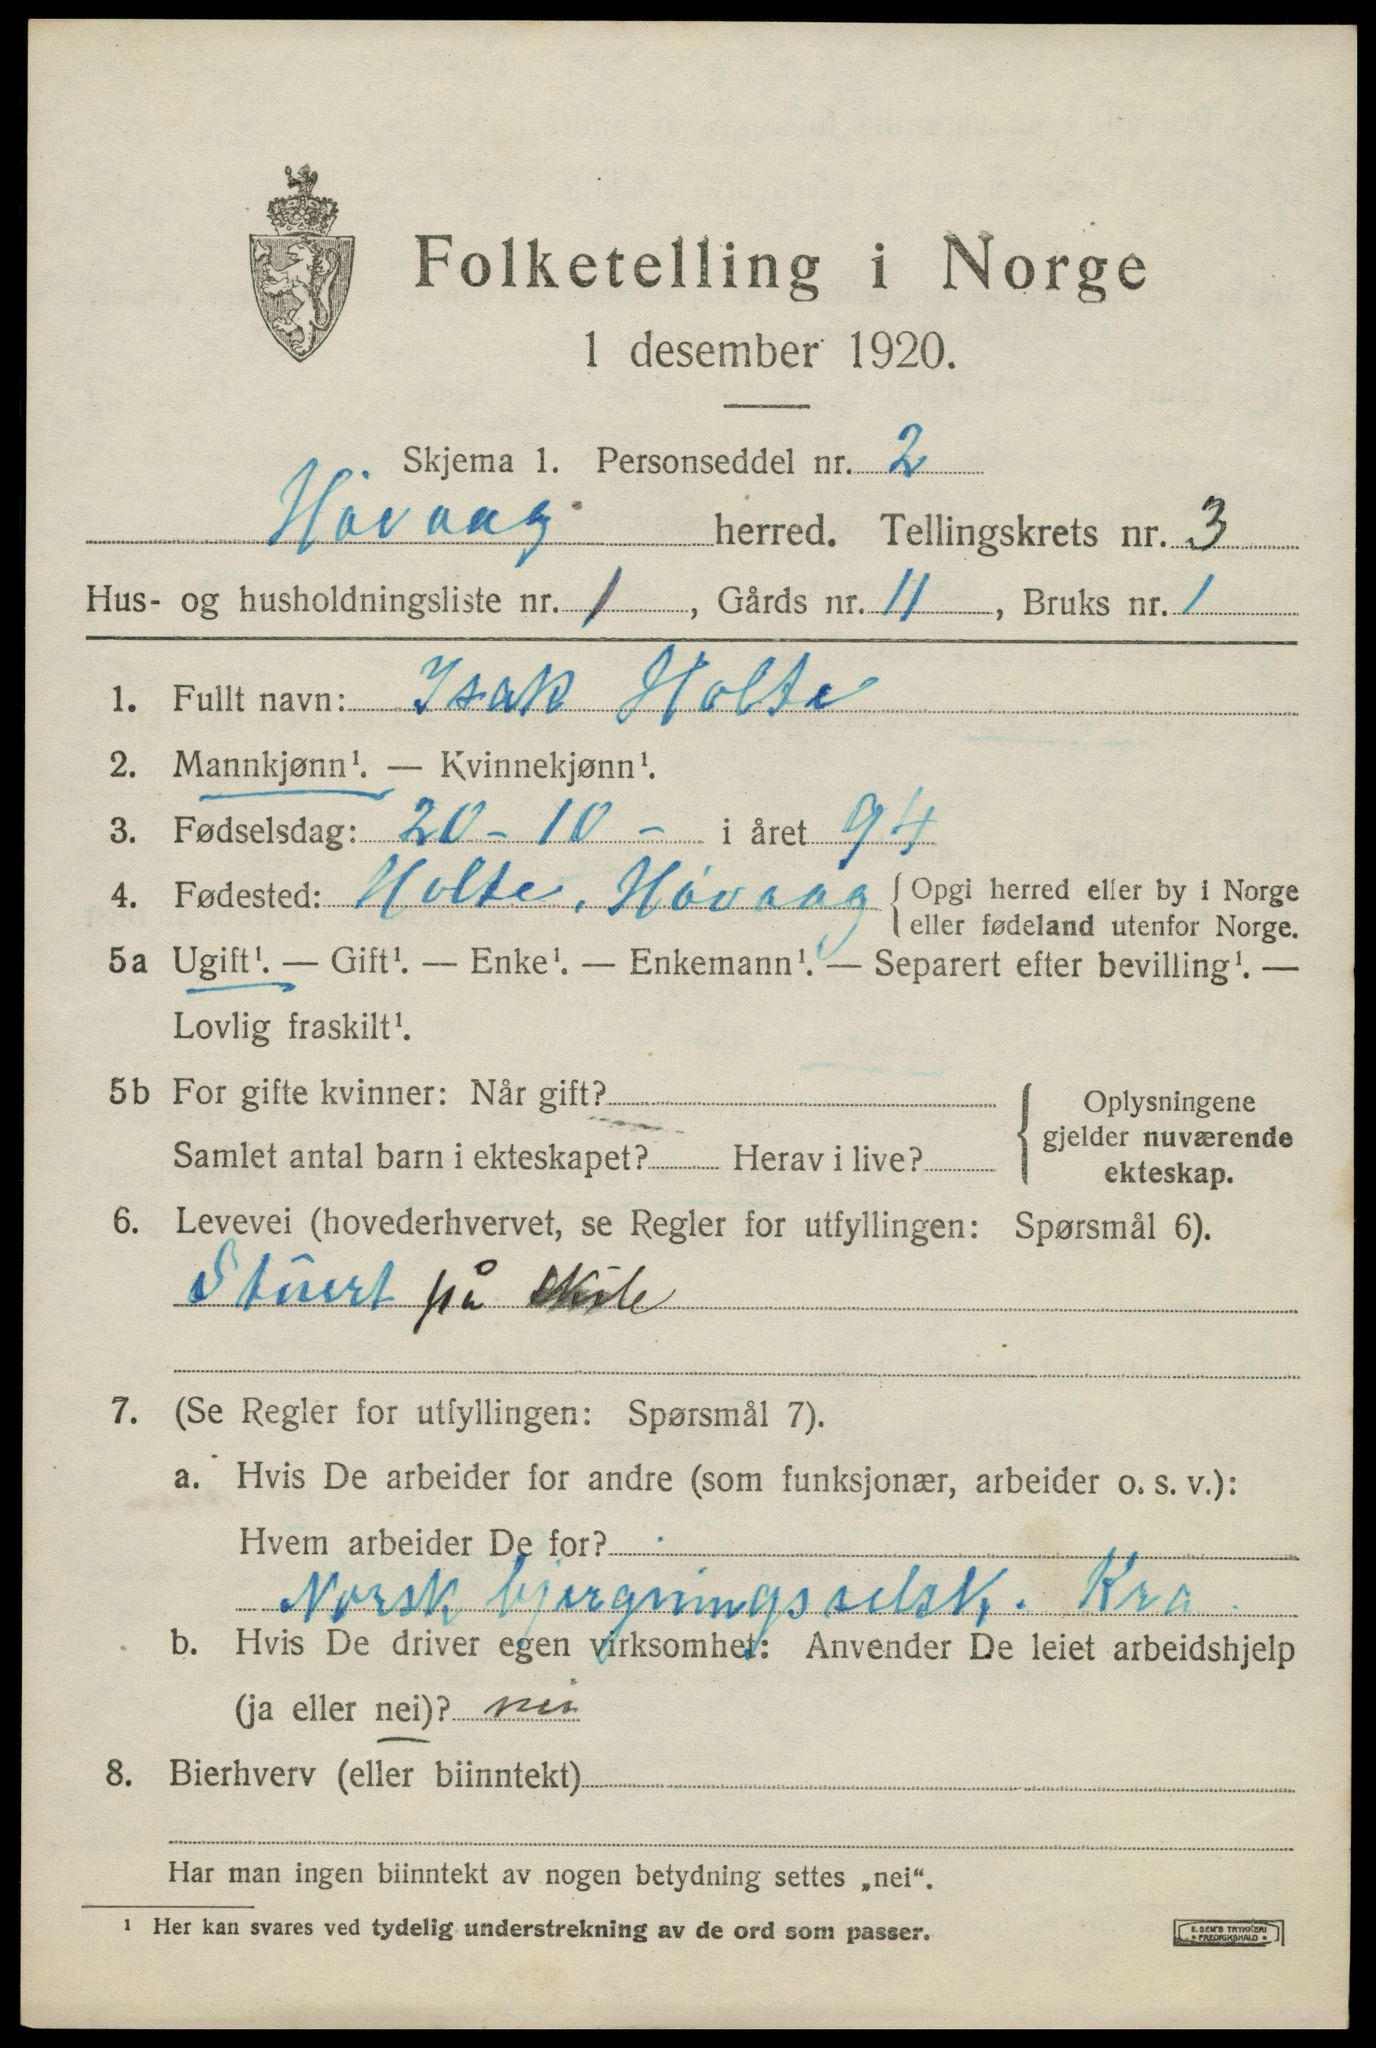 Folketelling i Norge
1 desember 1920.
Skjema 1. Personseddel nr. 2
Høvaag herred. Tellingskrets nr. 3
Hus- og husholdningsliste nr. 1, Gårds nr. 11, Bruks nr. 1
1. Fullt navn: Isak Holte
2. Mannkjønn¹. — Kvinnekjønn¹.
3. Fødselsdag: 20 - 10 - i året 94
4. Fødested: Holte, Høvaag { Opgi herred eller by i Norge
eller fødeland utenfor Norge.
5a Ugift¹. — Gift¹. — Enke¹. — Enkemann¹. — Separert efter bevilling¹. —
Lovlig fraskilt¹.
5b For gifte kvinner: Når gift?
Samlet antal barn i ekteskapet? Herav i live?
Oplysningene
gjelder nuværende
ekteskap.
6. Levevei (hovederhvervet, se Regler for utfyllingen: Spørsmål 6).
Stuert på
7. (Se Regler for utfyllingen: Spørsmål 7).
a. Hvis De arbeider for andre (som funksjonær, arbeider o. s. v.):
Hvem arbeider De for?
Norsk bjergningsselsk. Kra.
b. Hvis De driver egen virksomhet: Anvender De leiet arbeidshjelp
(ja eller nei)? nei
8. Bierhverv (eller biinntekt)
Har man ingen biinntekt av nogen betydning settes „nei“.
¹ Her kan svares ved tydelig understrekning av de ord som passer.
E. SEM'S TRYKKERI
• FREDRIKSHALD •